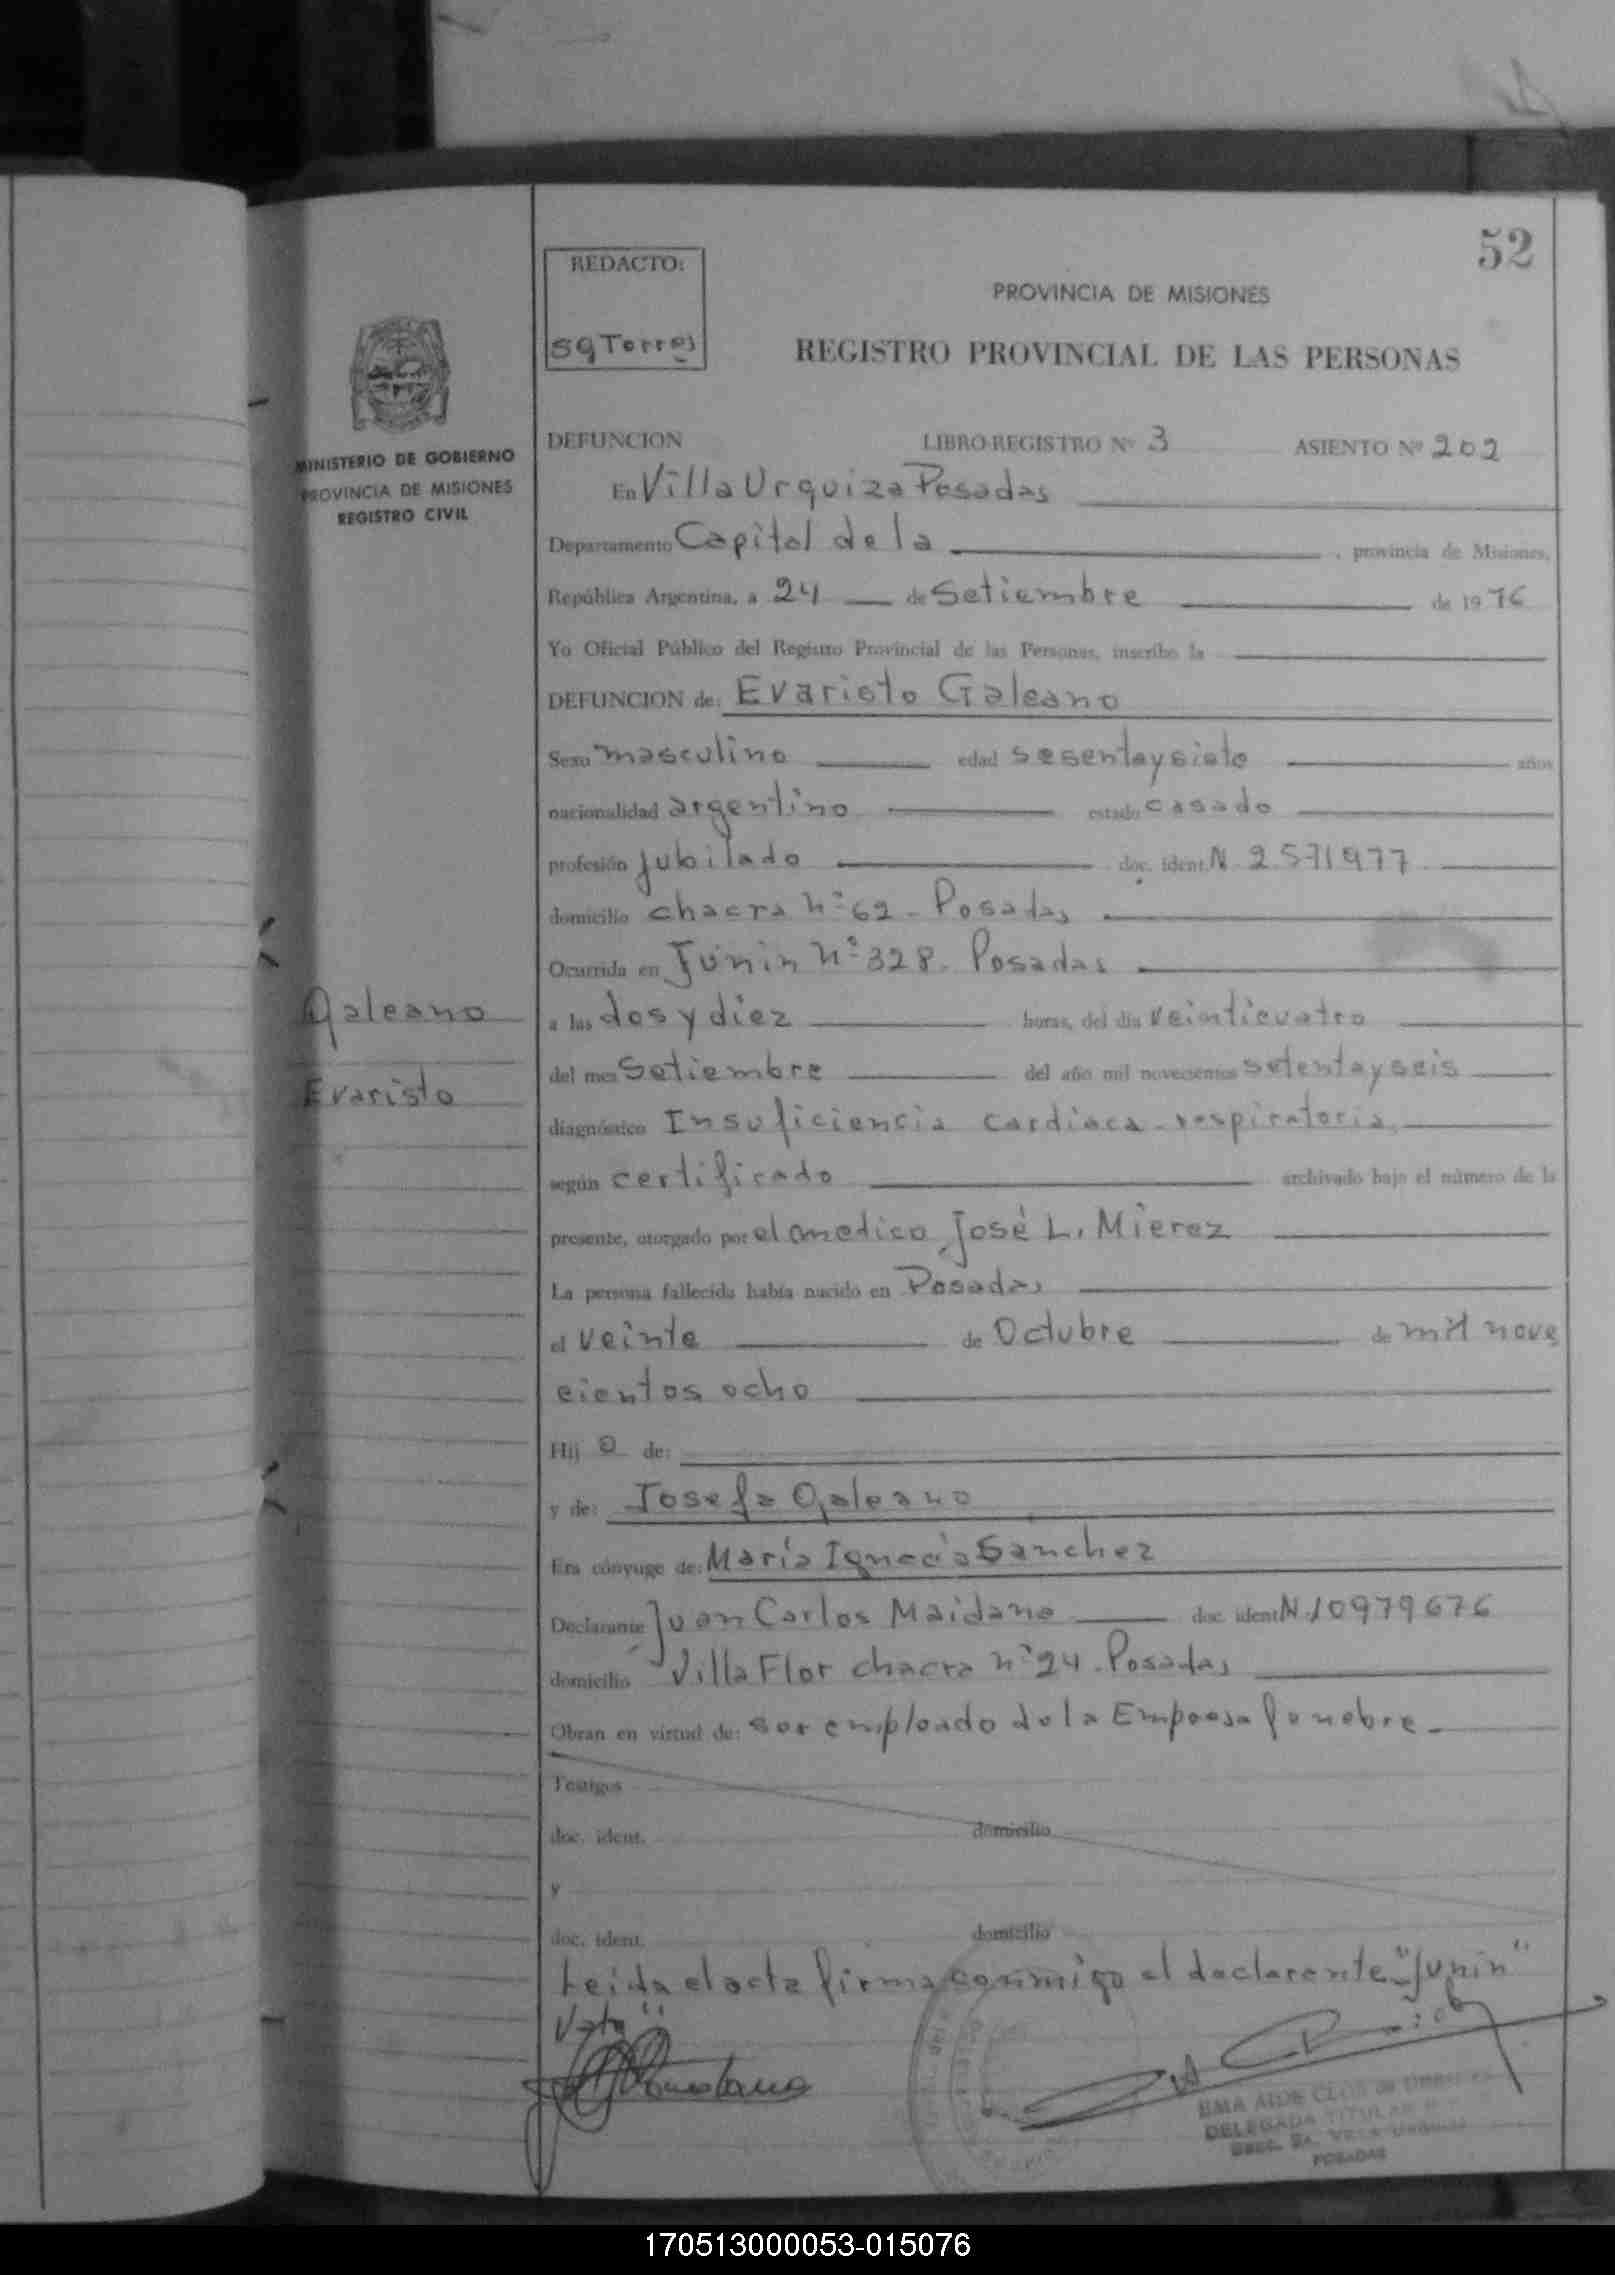 52
REDACTO:
SGTorres
PROVINCIA DE MISIONES
REGISTRO PROVINCIAL DE LAS PERSONAS
MINISTERIO DE GOBIERNO
PROVINCIA DE MISIONES
REGISTRO CIVIL
DEFUNCION LIBRO-REGISTRO Nº 3 ASIENTO Nº 202
En Villa Urquiza Posadas
Departamento Capital de la , provincia de Misiones,
República Argentina, a 24 de Setiembre de 1976
Yo Oficial Público del Registro Provincial de las Personas, inscribo la
DEFUNCION de: Evaristo Galeano
Sexo masculino edad sesentaysiete años
nacionalidad argentino estado casado
profesión jubilado doc. ident. N 2.571977
domicilio chacra nº 62 - Posadas
Ocurrida en Junin Nº 328. Posadas
Galeano
Evaristo
a las dos y diez horas, del día veinticuatro
del mes Setiembre del año mil novecientos setentayseis
diagnóstico Insuficiencia cardiaca - respiratoria
según certificado archivado bajo el número de la
presente, otorgado por el medico José L. Mierez
La persona fallecida había nacido en Posadas
el veinte de Octubre de mil nove
cientos ocho
Hij o de:
y de: Josefa Galeano
Era cónyuge de: María Ignacia Sanchez
Declarante Juan Carlos Maidana doc. ident. N.10979676
domicilio Villa Flor chacra nº 24. Posadas
Obran en virtud de: ser empleado de la Empresa funebre -
Testigos
doc. ident. domicilio
y
doc. ident. domicilio
Leida el acta firma conmigo el declarente - "Junin"
Vale"
DELEGADA TITULAR
POSADAS
170513000053-015076